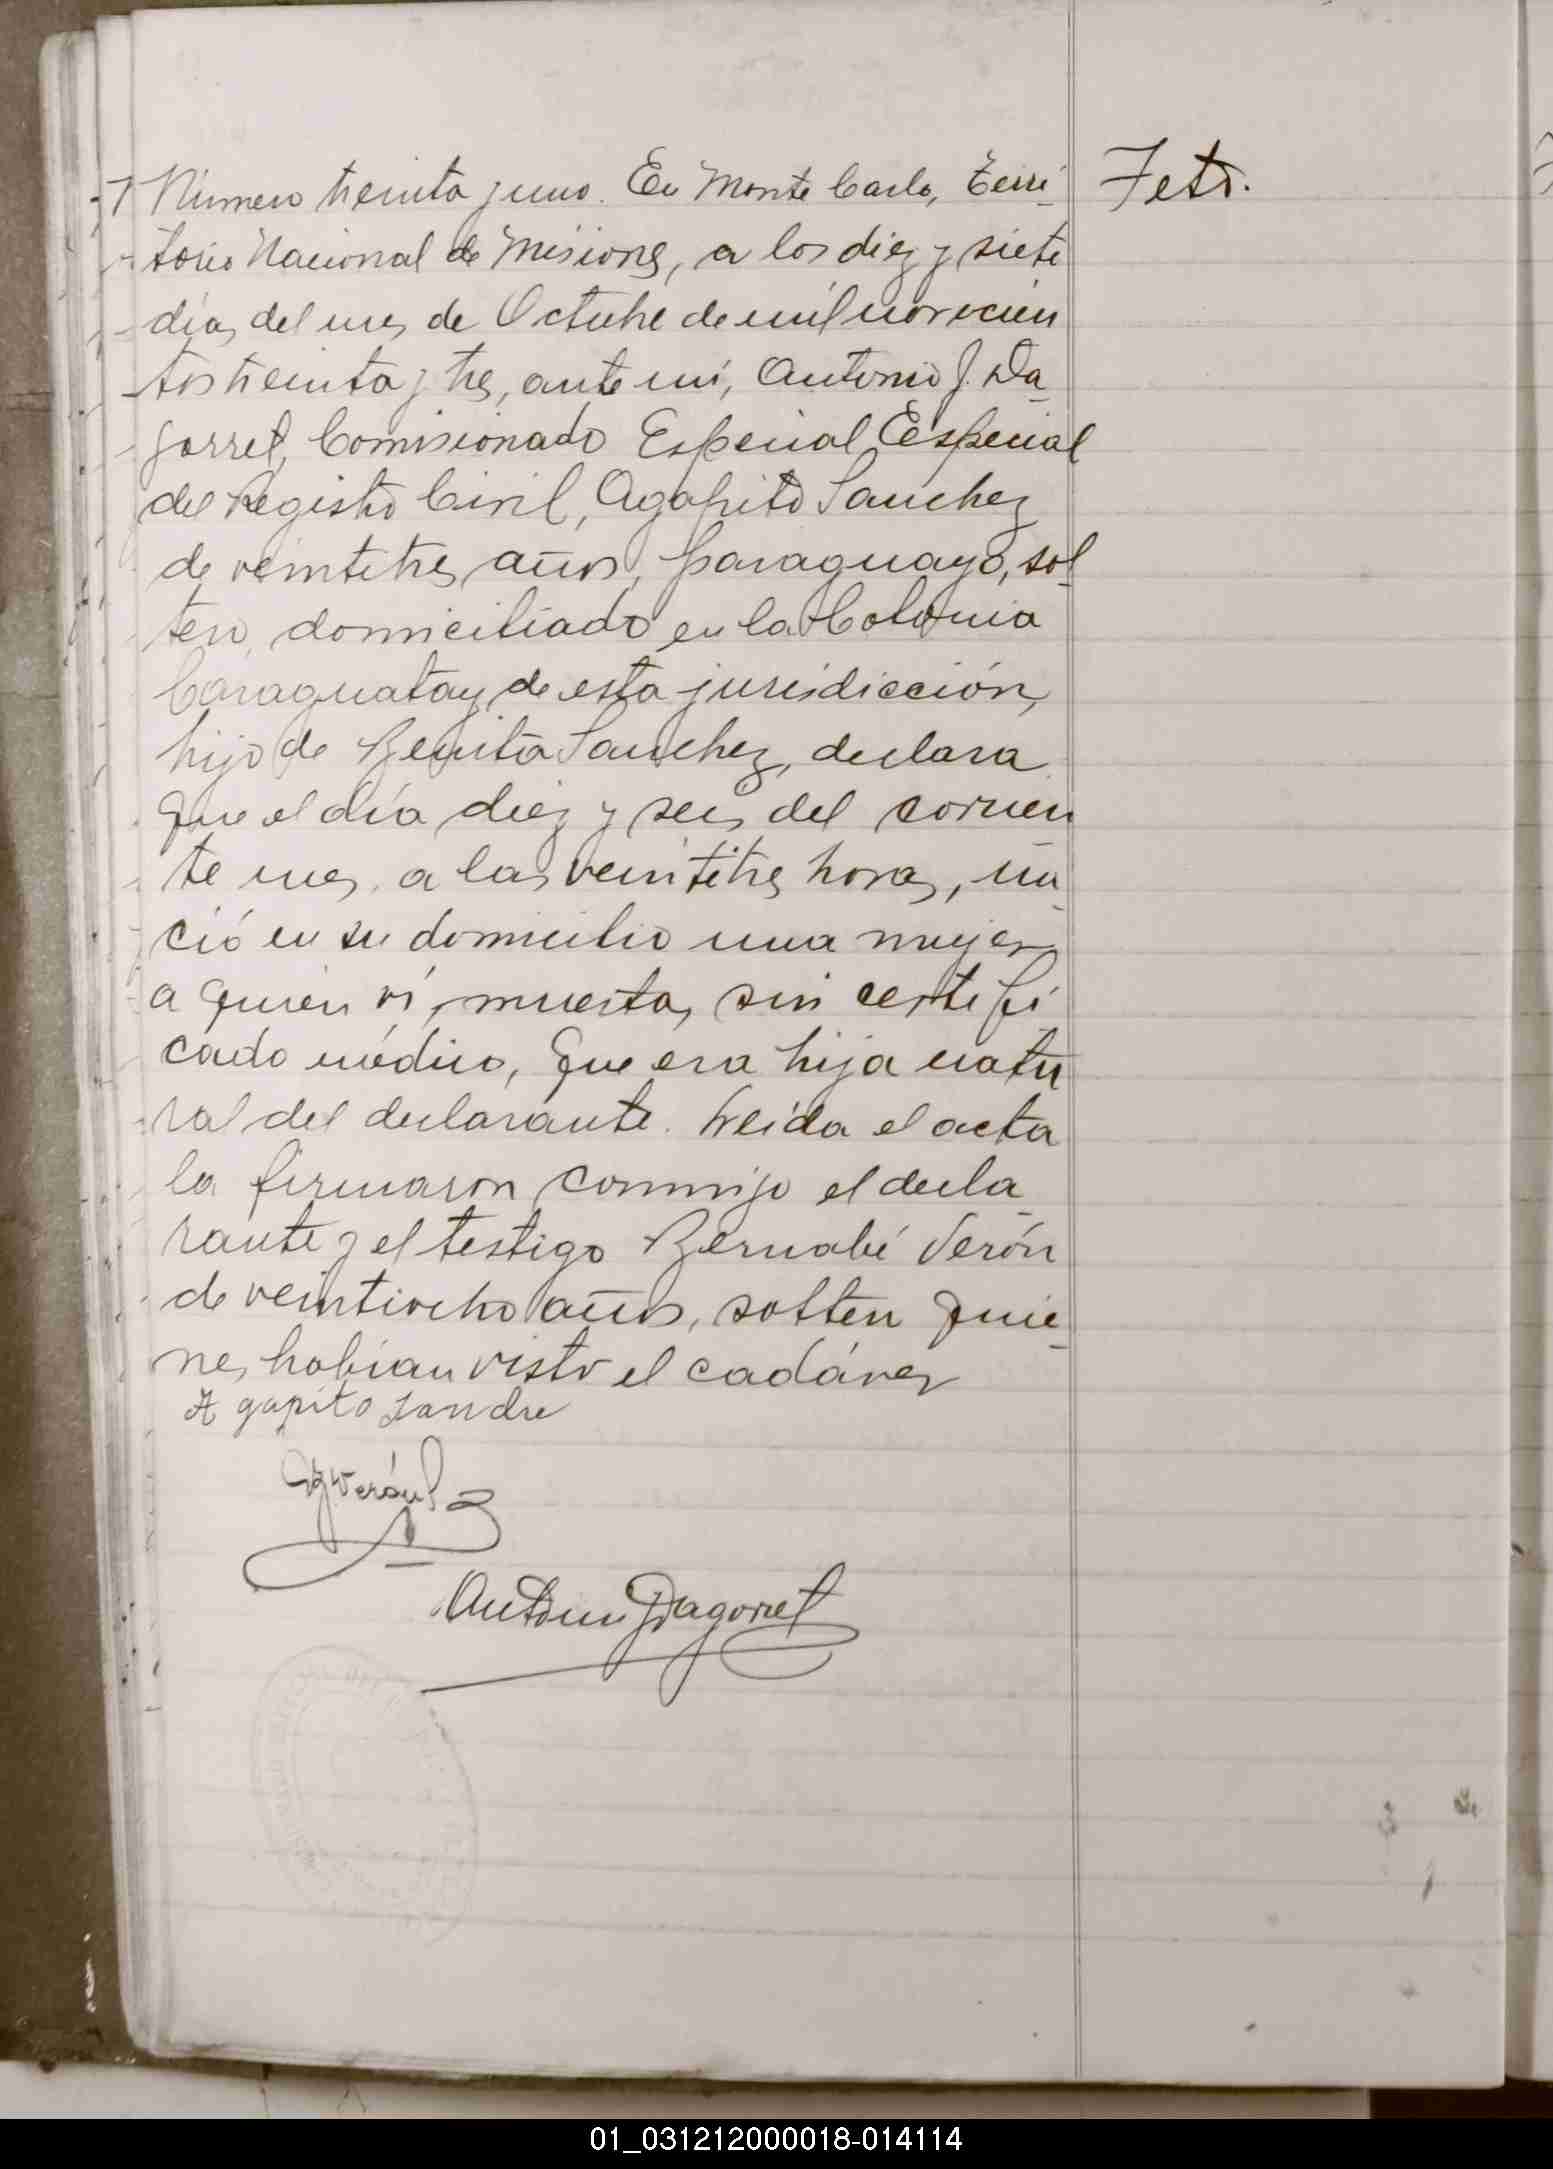 Número treinta y uno. En Monte Carlo, Terri-
torio Nacional de Misiones, a los diez y siete
días del mes de Octubre de mil novecien
tos treinta y tres, ante mí, Antonio J. Da-
gorret, Comisionado Especial Especial
del Registro Civil, Agapito Sanchez
de veintitres años, paraguayo, sol-
tero, domiciliado en la Colonia
Caraguatay de esta jurisdicción,
hijo de Benita Sanchez, declara
que el día diez y seis del corrien
te mes, a las veintitres horas, na-
ció en su domicilio una mujer
a quien ví, muerta, sin certifi
cado médico, que era hija natu
ral del declarante. Leida el acta
la firmaron conmigo el decla-
rante y el testigo Bernabé Verón
de veintiocho años, soltero quie-
nes habían visto el cadáver
Agapito Sandre
Antonio J Dagorret
Feto.
01_031212000018-014114